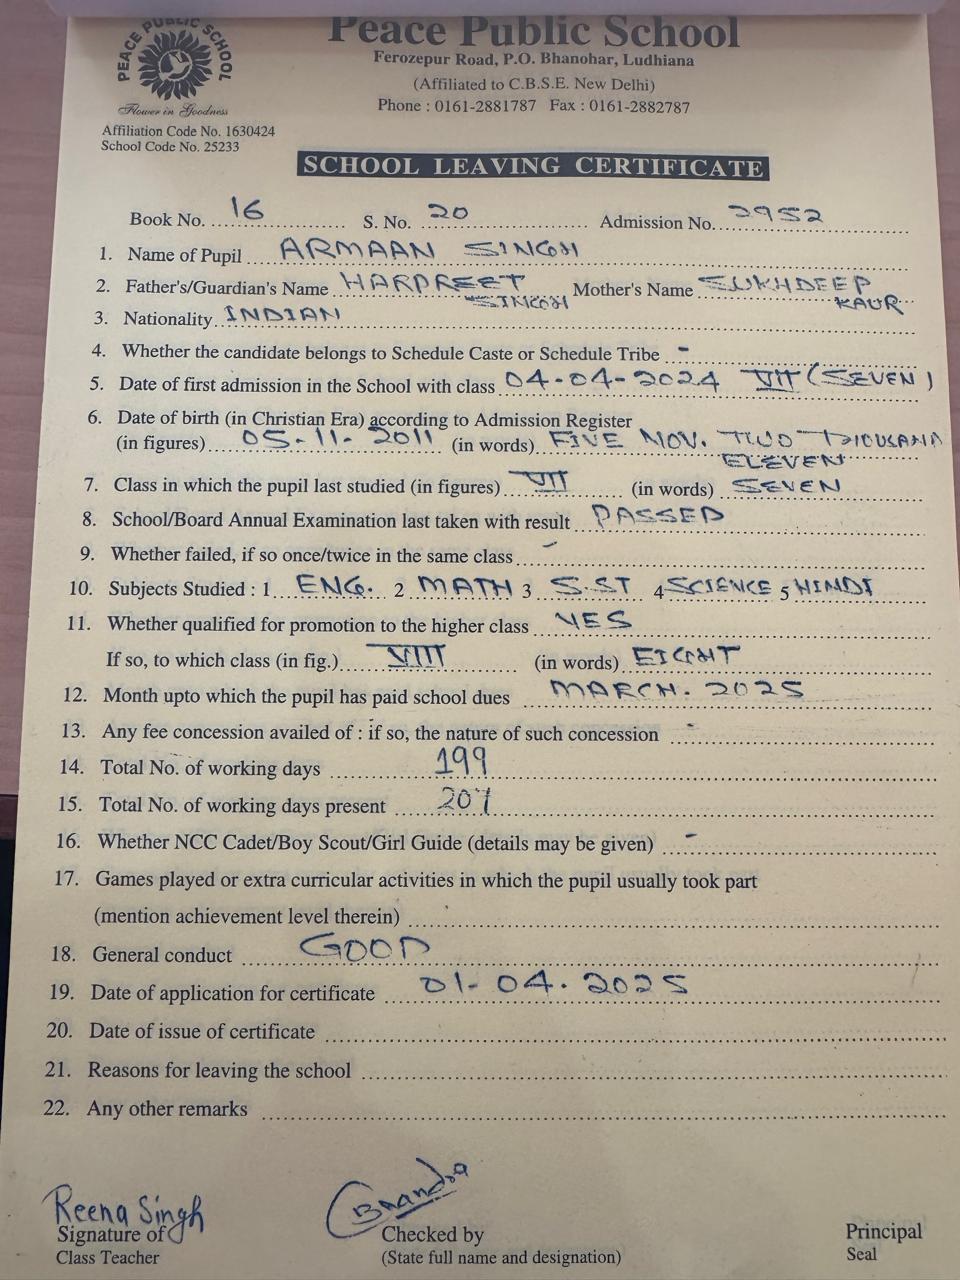 PEACE PUBLIC SCHOOL
Flower in Goodness
Affiliation Code No. 1630424
School Code No. 25233
Peace Public School
Ferozepur Road, P.O. Bhanohar, Ludhiana
(Affiliated to C.B.S.E. New Delhi)
Phone : 0161-2881787 Fax : 0161-2882787
SCHOOL LEAVING CERTIFICATE
Book No. 16 S. No. 20 Admission No. 2952
1. Name of Pupil ARMAAN SINGH
2. Father's/Guardian's Name HARPREET SINGH Mother's Name SUKHDEEP KAUR
3. Nationality INDIAN
4. Whether the candidate belongs to Schedule Caste or Schedule Tribe -
5. Date of first admission in the School with class 04-04-2024 VII (SEVEN)
6. Date of birth (in Christian Era) according to Admission Register
(in figures) 05-11-2011 (in words) FIVE NOV. TWO THOUSAND
ELEVEN
7. Class in which the pupil last studied (in figures) VII (in words) SEVEN
8. School/Board Annual Examination last taken with result PASSED
9. Whether failed, if so once/twice in the same class -
10. Subjects Studied : 1 ENG. 2 MATH 3 S.ST 4 SCIENCE 5 HINDI
11. Whether qualified for promotion to the higher class YES
If so, to which class (in fig.) VIII (in words) EIGHT
12. Month upto which the pupil has paid school dues MARCH. 2025
13. Any fee concession availed of : if so, the nature of such concession -
14. Total No. of working days 199
15. Total No. of working days present 207
16. Whether NCC Cadet/Boy Scout/Girl Guide (details may be given) -
17. Games played or extra curricular activities in which the pupil usually took part
(mention achievement level therein)
18. General conduct GOOD
19. Date of application for certificate 01-04.2025
20. Date of issue of certificate
21. Reasons for leaving the school
22. Any other remarks
Reena Singh
Signature of
Class Teacher
Chandra
Checked by
(State full name and designation)
Principal
Seal